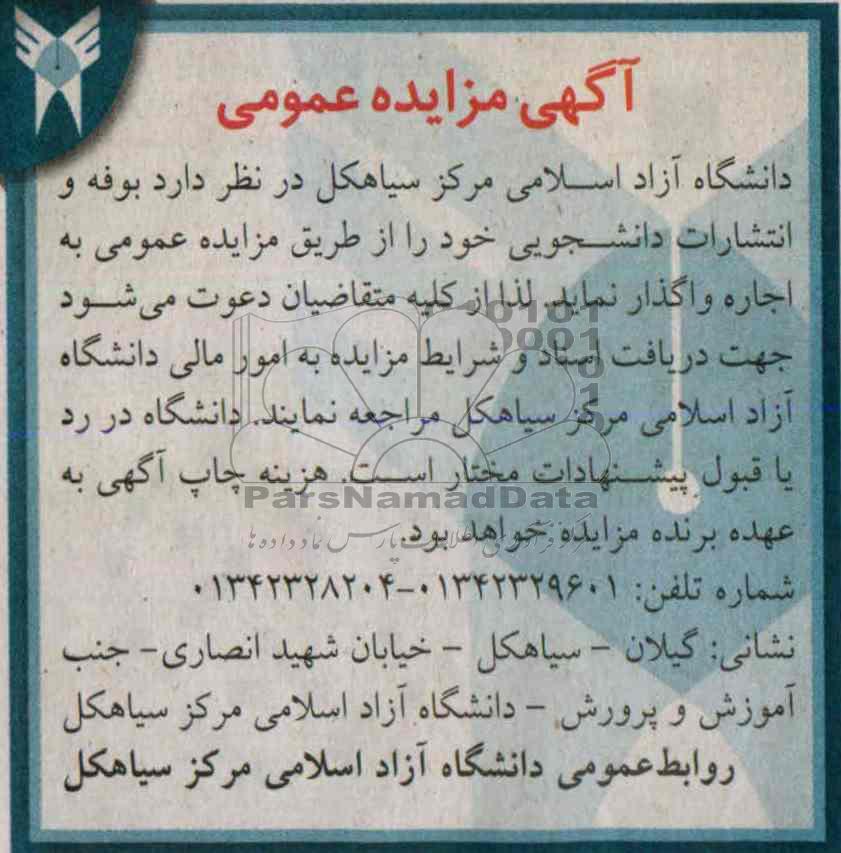 آگهی مزایده عمومی
دانشگاه آزاد اسلامی مرکز سیاهکل در نظر دارد بوفه و
انتشارات دانشجویی خود را از طریق مزایده عمومی به
اجاره واگذار نماید. لذا از کلیه متقاضیان دعوت می‌شود
جهت دریافت اسناد و شرایط مزایده به امور مالی دانشگاه
آزاد اسلامی مرکز سیاهکل مراجعه نمایند. دانشگاه در رد
یا قبول پیشنهادات مختار است. هزینه چاپ آگهی به
عهده برنده مزایده خواهد بود.
شماره تلفن: ۰۱۳۴۲۳۲۹۶۰۱-۰۱۳۴۲۳۲۸۲۰۴
نشانی: گیلان - سیاهکل - خیابان شهید انصاری- جنب
آموزش و پرورش - دانشگاه آزاد اسلامی مرکز سیاهکل
روابط‌عمومی دانشگاه آزاد اسلامی مرکز سیاهکل
ParsNamadData